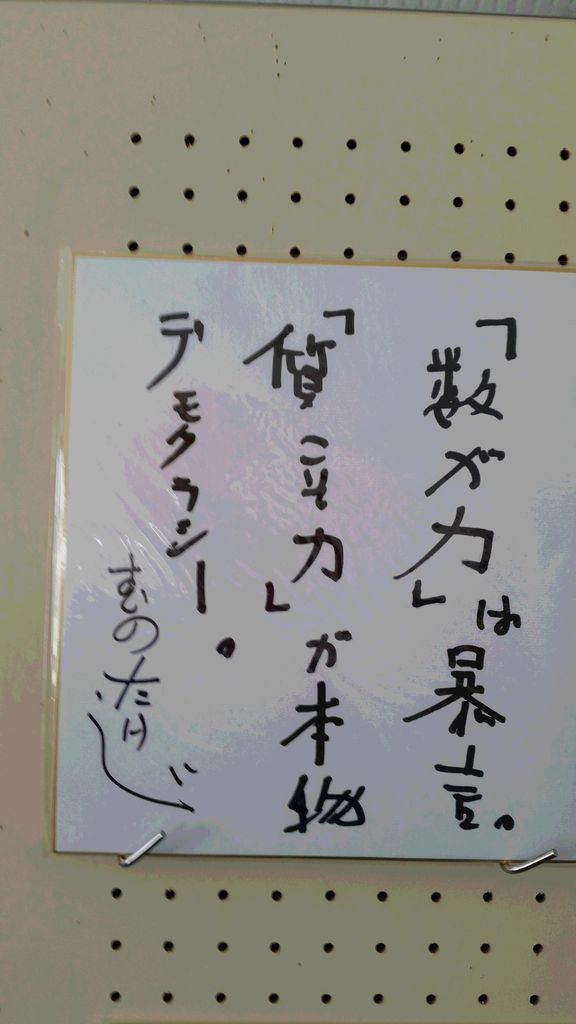 「数が力」は暴言。
「質こそ力」が本物
デモクラシー。
むのたけじ